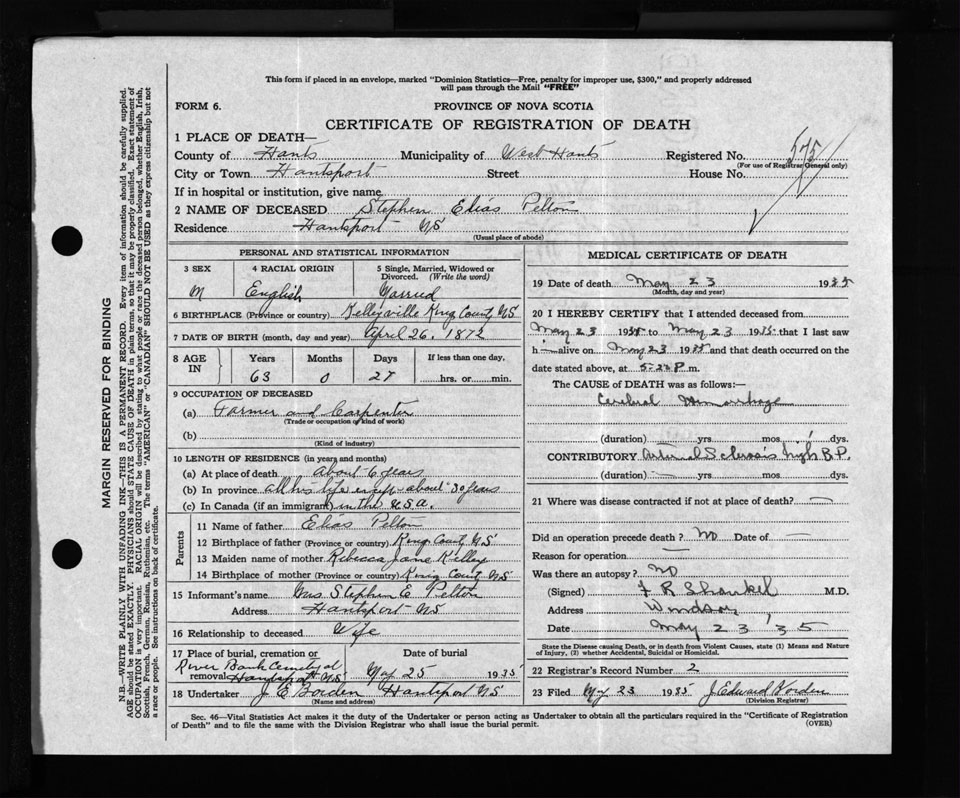 This form if placed in an envelope, marked "Dominion Statistics—Free, penalty for improper use, $300," and properly addressed
will pass through the Mail "FREE"
FORM 6.
PROVINCE OF NOVA SCOTIA
CERTIFICATE OF REGISTRATION OF DEATH
1 PLACE OF DEATH—
County of Hants Municipality of West Hants Registered No. 575
(For use of Registrar General only)
City or Town Hantsport Street House No.
If in hospital or institution, give name
2 NAME OF DECEASED Stephen Elias Pelton
Residence Hantsport NS
(Usual place of abode)
PERSONAL AND STATISTICAL INFORMATION
3 SEX 4 RACIAL ORIGIN 5 Single, Married, Widowed or
Divorced. (Write the word)
M English Married
6 BIRTHPLACE (Province or country) Kelleyville King County NS
7 DATE OF BIRTH (month, day and year) April 26, 1872
8 AGE IN Years Months Days If less than one day,
63 0 27 hrs. or min.
9 OCCUPATION OF DECEASED
(a) Farmer and Carpenter
(Trade or occupation or kind of work)
(b)
(Kind of industry)
10 LENGTH OF RESIDENCE (in years and months)
(a) At place of death About 6 years
(b) In province all his life except about 30 years
(c) In Canada (if an immigrant) in the U.S.A.
Parents
11 Name of father Elias Pelton
12 Birthplace of father (Province or country) King County NS
13 Maiden name of mother Rebecca Jane Kelley
14 Birthplace of mother (Province or country) King County NS
15 Informant's name Mrs Stephen E Pelton
Address Hantsport NS
16 Relationship to deceased Wife
17 Place of burial, cremation or Date of burial
River Bank Cemetery at
removal Hantsport NS May 25 1935
18 Undertaker J E Borden Hantsport NS
(Name and address)
MEDICAL CERTIFICATE OF DEATH
19 Date of death May 23 1935
(Month, day and year)
20 I HEREBY CERTIFY that I attended deceased from
May 23 1935 to May 23 1935 that I last saw
him alive on May 23 1935 and that death occurred on the
date stated above, at P.m.
The CAUSE of DEATH was as follows:—
Cerebral Hemorrhage
(duration) yrs. mos. 1 dys.
CONTRIBUTORY Arterial Sclerosis high B.P.
(duration) yrs. mos. dys.
21 Where was disease contracted if not at place of death? —
Did an operation precede death? No Date of —
Reason for operation —
Was there an autopsy? No
(Signed) F R Shankel M.D.
Address Windsor
Date May 23 '35
State the Disease causing Death, or in death from Violent Causes, state (1) Means and Nature
of Injury, (2) whether Accidental, Suicidal or Homicidal.
22 Registrar's Record Number 2
23 Filed May 23 1935 J. Edward Borden
(Division Registrar)
Sec. 46—Vital Statistics Act makes it the duty of the Undertaker or person acting as Undertaker to obtain all the particulars required in the "Certificate of Registration
of Death" and to file the same with the Division Registrar who shall issue the burial permit.
(OVER)
MARGIN RESERVED FOR BINDING
N.B.—WRITE PLAINLY WITH UNFADING INK—THIS IS A PERMANENT RECORD. Every item of information should be carefully supplied.
AGE should be stated EXACTLY. PHYSICIANS should STATE CAUSE OF DEATH in plain terms, so that it may be properly classified. Exact statement of
OCCUPATION is very important. RACIAL ORIGIN will be described by stating to what people or race the deceased person belonged, whether English, Irish,
Scottish, French, German, Russian, Ruthenian, etc. The terms "AMERICAN" or "CANADIAN" SHOULD NOT BE USED as they express citizenship but not
a race or people. See instructions on back of certificate.